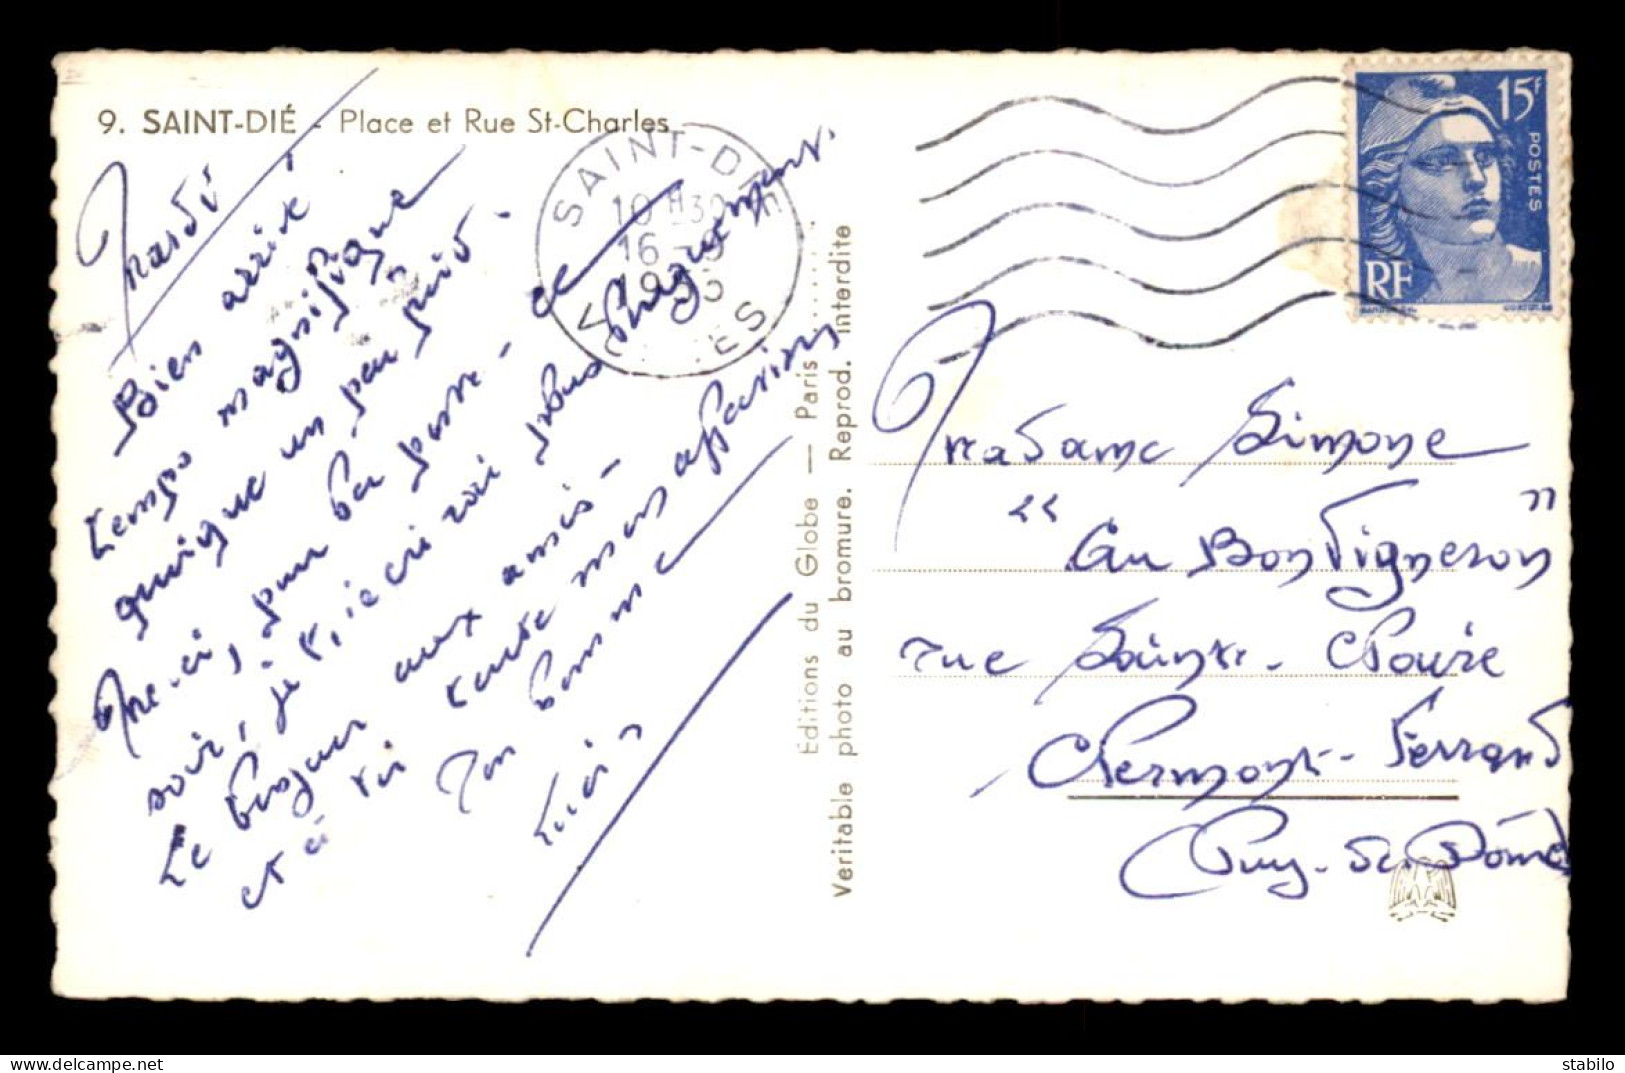 9. SAINT-DIÉ - Place et Rue St-Charles
Mardi
Bien arrivé
temps magnifique
quoique un peu froid -
Merci, pour la suite - ce
soir, je t'écrirai plus longuement.
Le bonjour aux amis -
et à toi toute mon affection
Ton homme
SAINT-DIÉ
10 H30
16 - 9
VOSGES
Editions du Globe — Paris
Veritable photo au bromure. Reprod. interdite
15F
POSTES
RF
Madame Simone
"Au Bon Vigneron"
rue Sainte-Claire
Clermont-Ferrand
Puy-de-Dôme
stabilo
www.delcampe.net